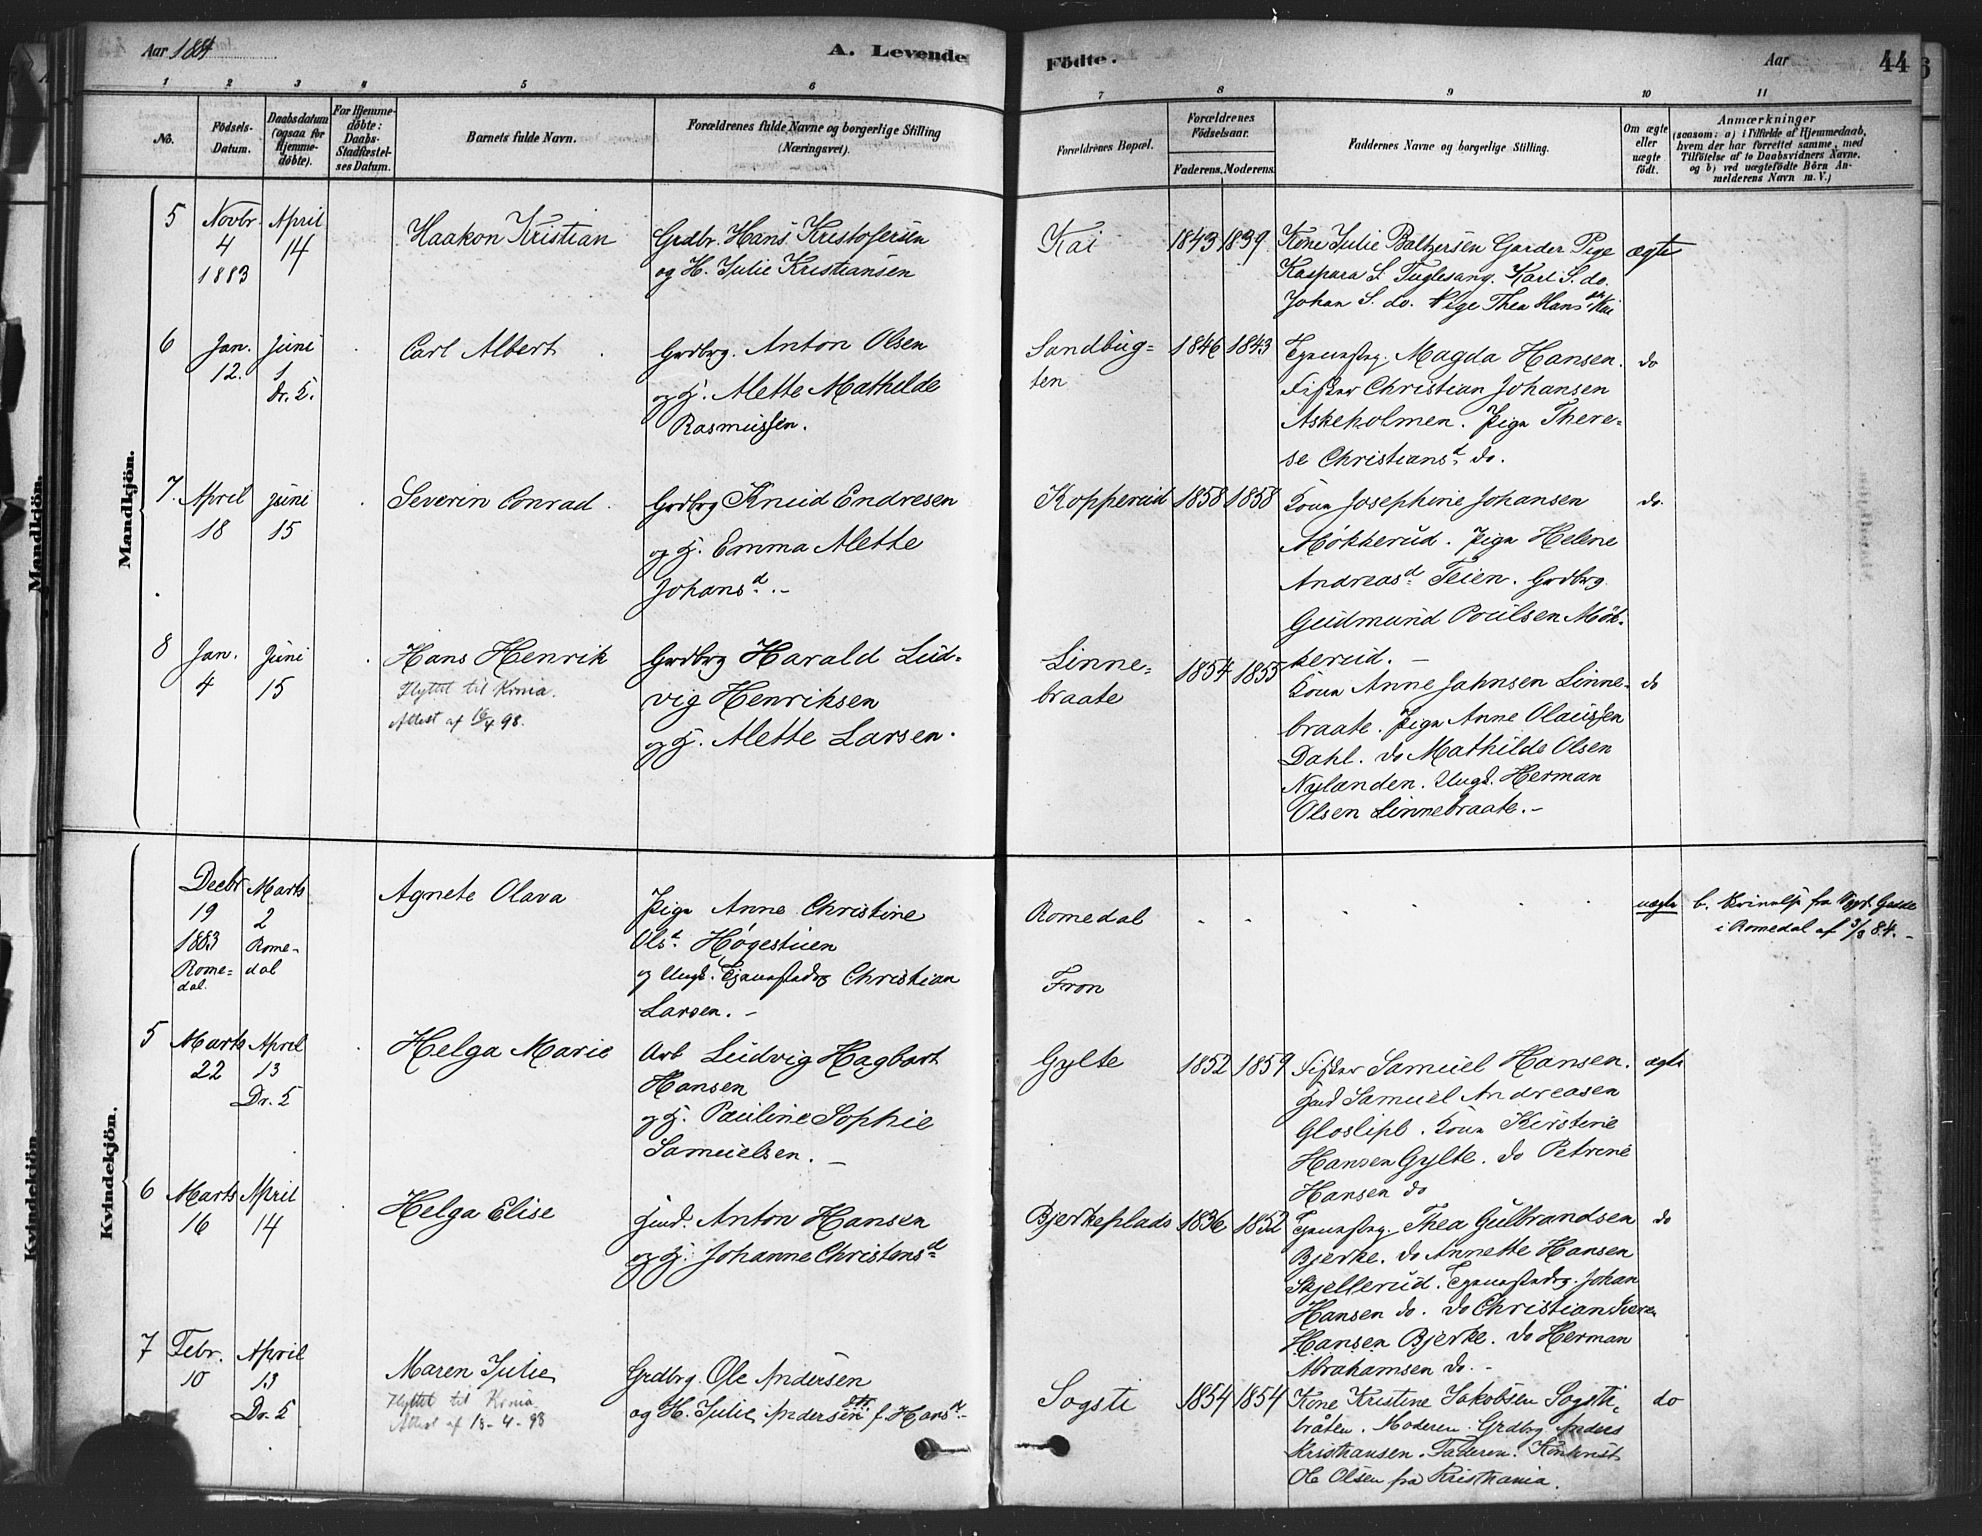 Aar 1884
A. Levende
Födte.
Aar
44
1 2 3 4 5 6 7 8 9 10 11
No.
Födsels-
Datum.
Daabsdatum
(ogsaa for
Hjemme-
döbte).
For Hjemme-
döbte:
Daabs-
Stadfæstel-
ses Datum.
Barnets fulde Navn.
Forældrenes fulde Navne og borgerlige Stilling
(Næringsvei).
Forældrenes Bopæl.
Forældrenes
Födselsaar.
Faderens. Moderens.
Faddernes Navne og borgerlige Stilling.
Om ægte
eller
uægte
födt.
Anmærkninger
(saasom: a) i Tilfælde af Hjemmedaab,
hvem der har forrettet samme, med
Tilföielse af to Daabsvidners Navne.
og b) ved uægtefödte Börn An-
melderens Navn m. V.)
Mandkjön.
5
Novbr.
4
1883
April
14
Haakon Kristian
Grdbr. Hans Kristofersen
og H. Julie Kristiansen
Kai
1843 1839
Kone Julie Baltzersen Garder Pige
Kaspara S. Fuglesang. Karl S. do.
Johan S. do. Pige Thea Hansen Kai
ægte
6
Jan.
12.
Juni
1
Dr. K.
Carl Albert
Grdbrg. Anton Olsen
og H. Alette Mathilde
Rasmussen.
Sandbug-
ten
1846 1843
Magda Hansen.
Fisker Christian Johansen
Askeholmen. Pige There-
se Christiansd. do.
do
7.
April
18
Juni
15
Severin Conrad
Grdbrg Knud Endresen
og H. Emma Alette
Johansd. -
Kopperud
1858 1858
Kone Josephine Johansen
Møkkerud. Pige Helene
Andreasd Teien. Grdbrg.
Gudmund Poulsen Møk-
kerud. -
do.
8
Jan.
4
Juni
15
Hans Henrik
Flyttet til Krnia.
Attest af 16/4 98.
Grdbrg Harald Lud-
vig Henriksen
og H. Alette Larsen.
Linne-
braate
1854 1855
Kone Anne Jahnsen Linne-
braate. Pige Anne Olaussen
Dahl. do Mathilde Olsen
Nylanden. Ungk. Herman
Olsen Linnebraate. -
do
Kvindekjön.
Decbr
19
1883
Rome-
dal.
Marts
2
Rome-
dal
Agnete Olava
Pige Anne Christine
Olsd. Høgestuen
og Ungk. Christian
Larsen. -
Romedal
Fron
uægte
b.
i Romedal af 3/3 84. -
5
Marts
22
April
13
Dr. K
Helga Marie
Arb Ludvig Hagbart
Hansen
og H. Pauline Sophie
Samuelsen. -
Gylte
1852 1859
Fisker Samuel Hansen.
Samuel Andreasen
Gloslipl. Kone Kirstine
Hansen Gylte. do Petrine
Hansen do
ægte
6
Marts
16
April
14
Helga Elise
Anton Hansen
og H. Johanne Christensd.
Bjerkeplads
1836 1852
Thea Gulbrandsen
Bjerke. do Annette Hansen
Skjellerud. Johan
Hansen do. do Christian
Hansen Bjerke. do Herman
Abrahamsen do. -
do
7
Febr.
10
April
13
Dr. K
Maren Julie
Flyttet til Krnia.
Attest af 13-4-98
Grdbrg. Ole Andersen
og H. Julie Andersen f. Hansd.
Sogsti
1854 1854
Kone Kristine Jakobsen Sogsti-
bråten. Moderen. Grdbrg Anders
Kristiansen. Faderen.
Ole Olsen fra Kristiania.
do
Mandkjön.
Kvindekjön.